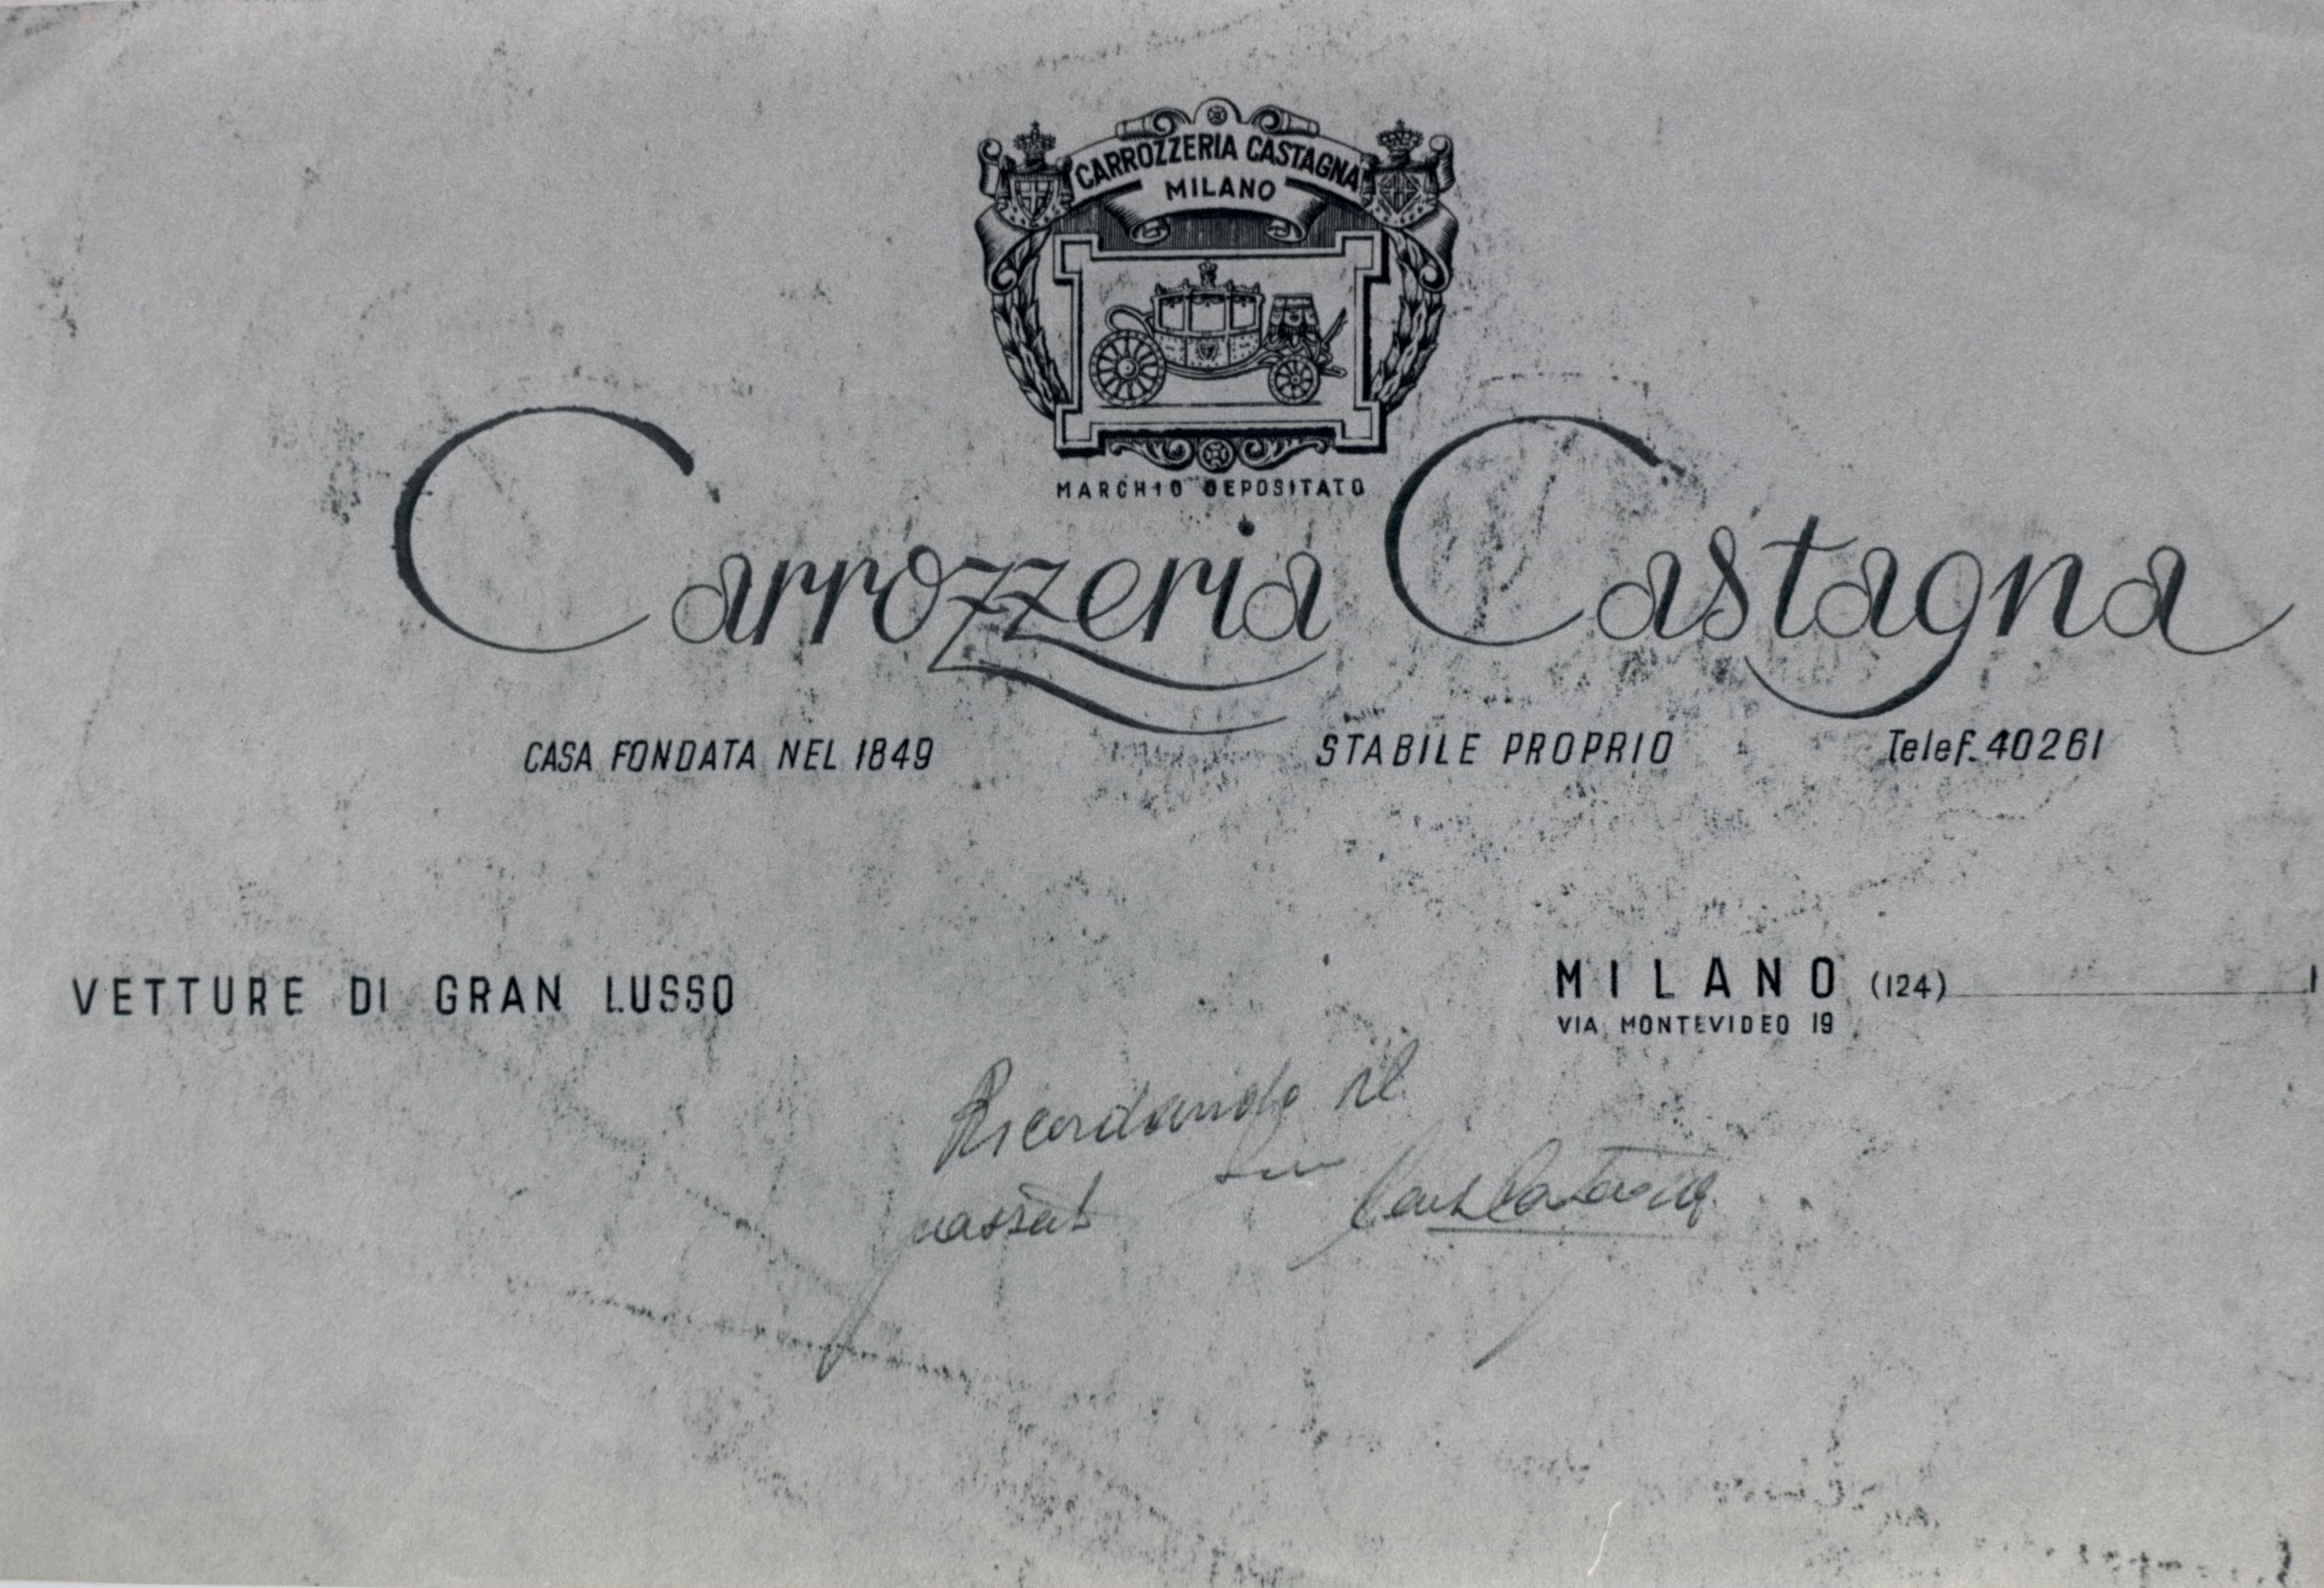 CARROZZERIA CASTAGNA
MILANO
MARCHIO DEPOSITATO
Carrozzeria Castagna
CASA FONDATA NEL 1849 STABILE PROPRIO Telef. 40261
VETTURE DI GRAN LUSSO
MILANO (124)
VIA MONTEVIDEO 19
Ricordando il